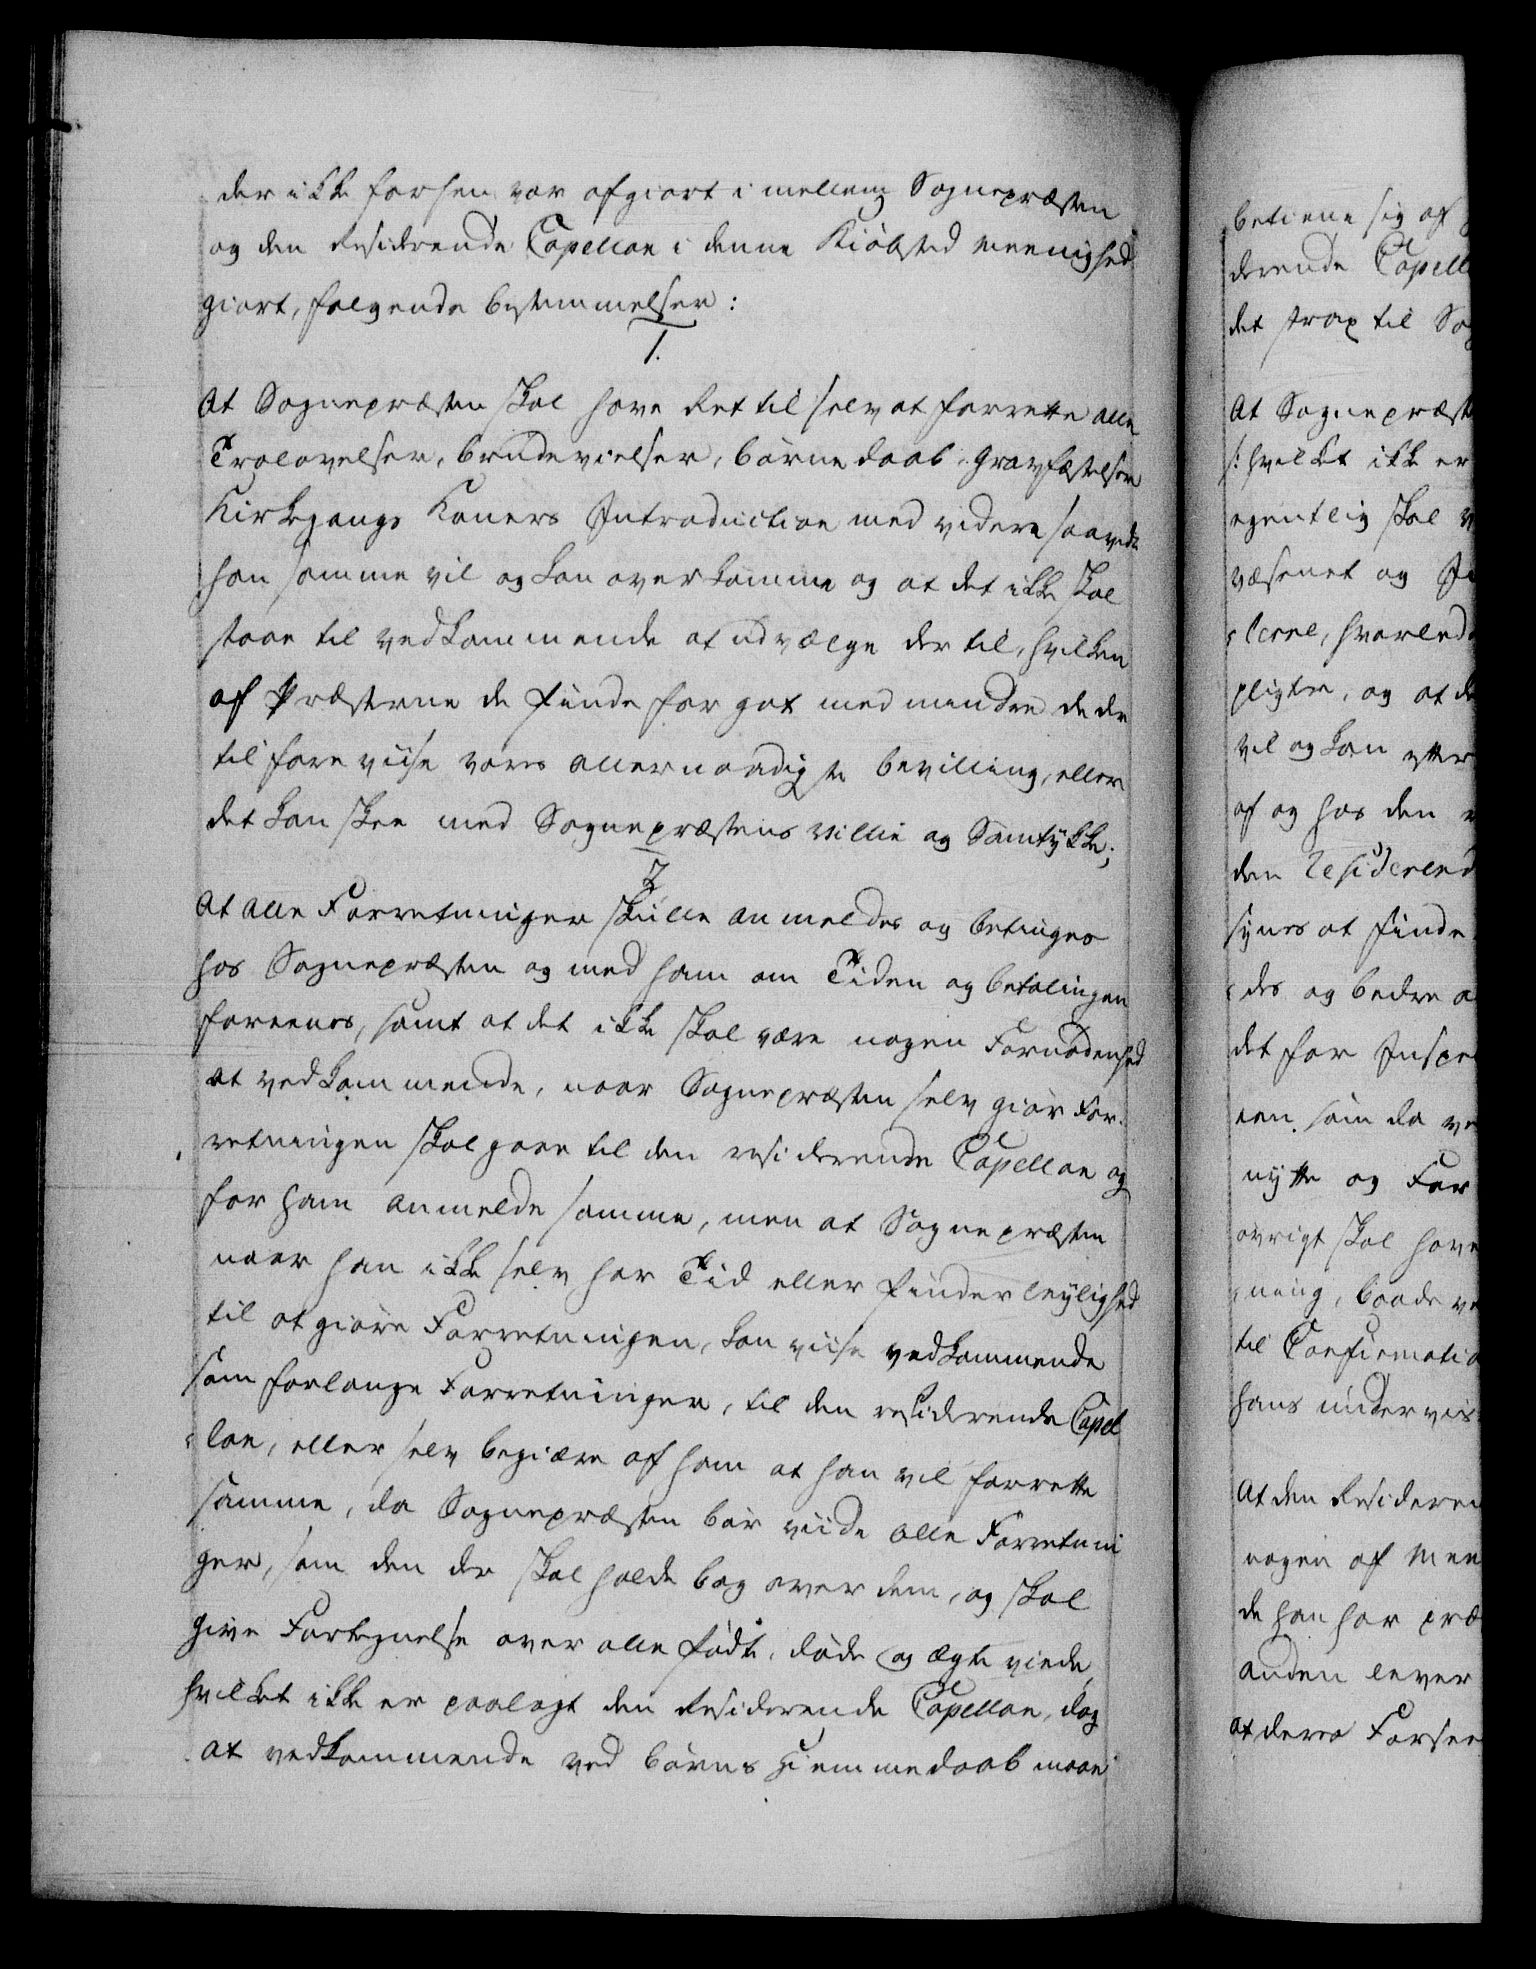 der ikke forhen var afgiort i mellem Sognepræsten
og den Residerende Capellan i denne Kiøbsted Meenighed
giort, følgende bestemmelser:
1.
At Sognepræsten skal have Ret til selv at forrette alle
Trolovelser, brudevielser, børnedaab, Gravfæstelser
Kirkegangs Koners Introduction med videre saavidt
han samme vil og kan overkomme og at det ikke skal
staae til vedkommende at udvælge der til, hvilken
af Præsterne de finde for got med mindre de der
til foreviise vores allernaadigste bevilling, eller
det kan skee med Sognepræstens villie og Samtykke;
2
At alle Forretninger skulle anmeldes og betinges
hos Sognepræsten og med ham om Tiden og betalingen
foreenes, samt at det ikke skal være nogen Fornødenhed
at vedkommende, naar Sognepræsten selv giør For-
retningen skal gaae til den residerende Capellan og
for ham anmelde samme, men at Sognepræsten
naar han ikke selv har Tid eller finder leylighed
til at giøre Forretningen, kan viise vedkommende
som forlange Forretninger, til den residerende Capel
lan, eller selv begiære af ham at han vil forrette
samme, da Sognepræsten bør viide alle Forretnin
ger, som den der skal holde bog over dem, og skal
give Fortegnelse over alle fødte, døde og ægte viede
hvilket ikke er paalagt den Residerende Capellan, dog
at vedkommende ved børns Hiemmedaab maae
betiene sig af
derende Capell
det strax til Sog
At Sognepræst
/: hvilket ikke er
egentlig skal
væsenet og
pligter, og at
vil og kan
af og hos den
den Residerend
synes at finde
des og bedre
det for Inspe
een som da
nytte og For
øvrigt skal have
ning, baade
til Confirmatio
hans underviis
At den Resideren
nogen af Mee
de han har præ
anden lever
at deres Forsee